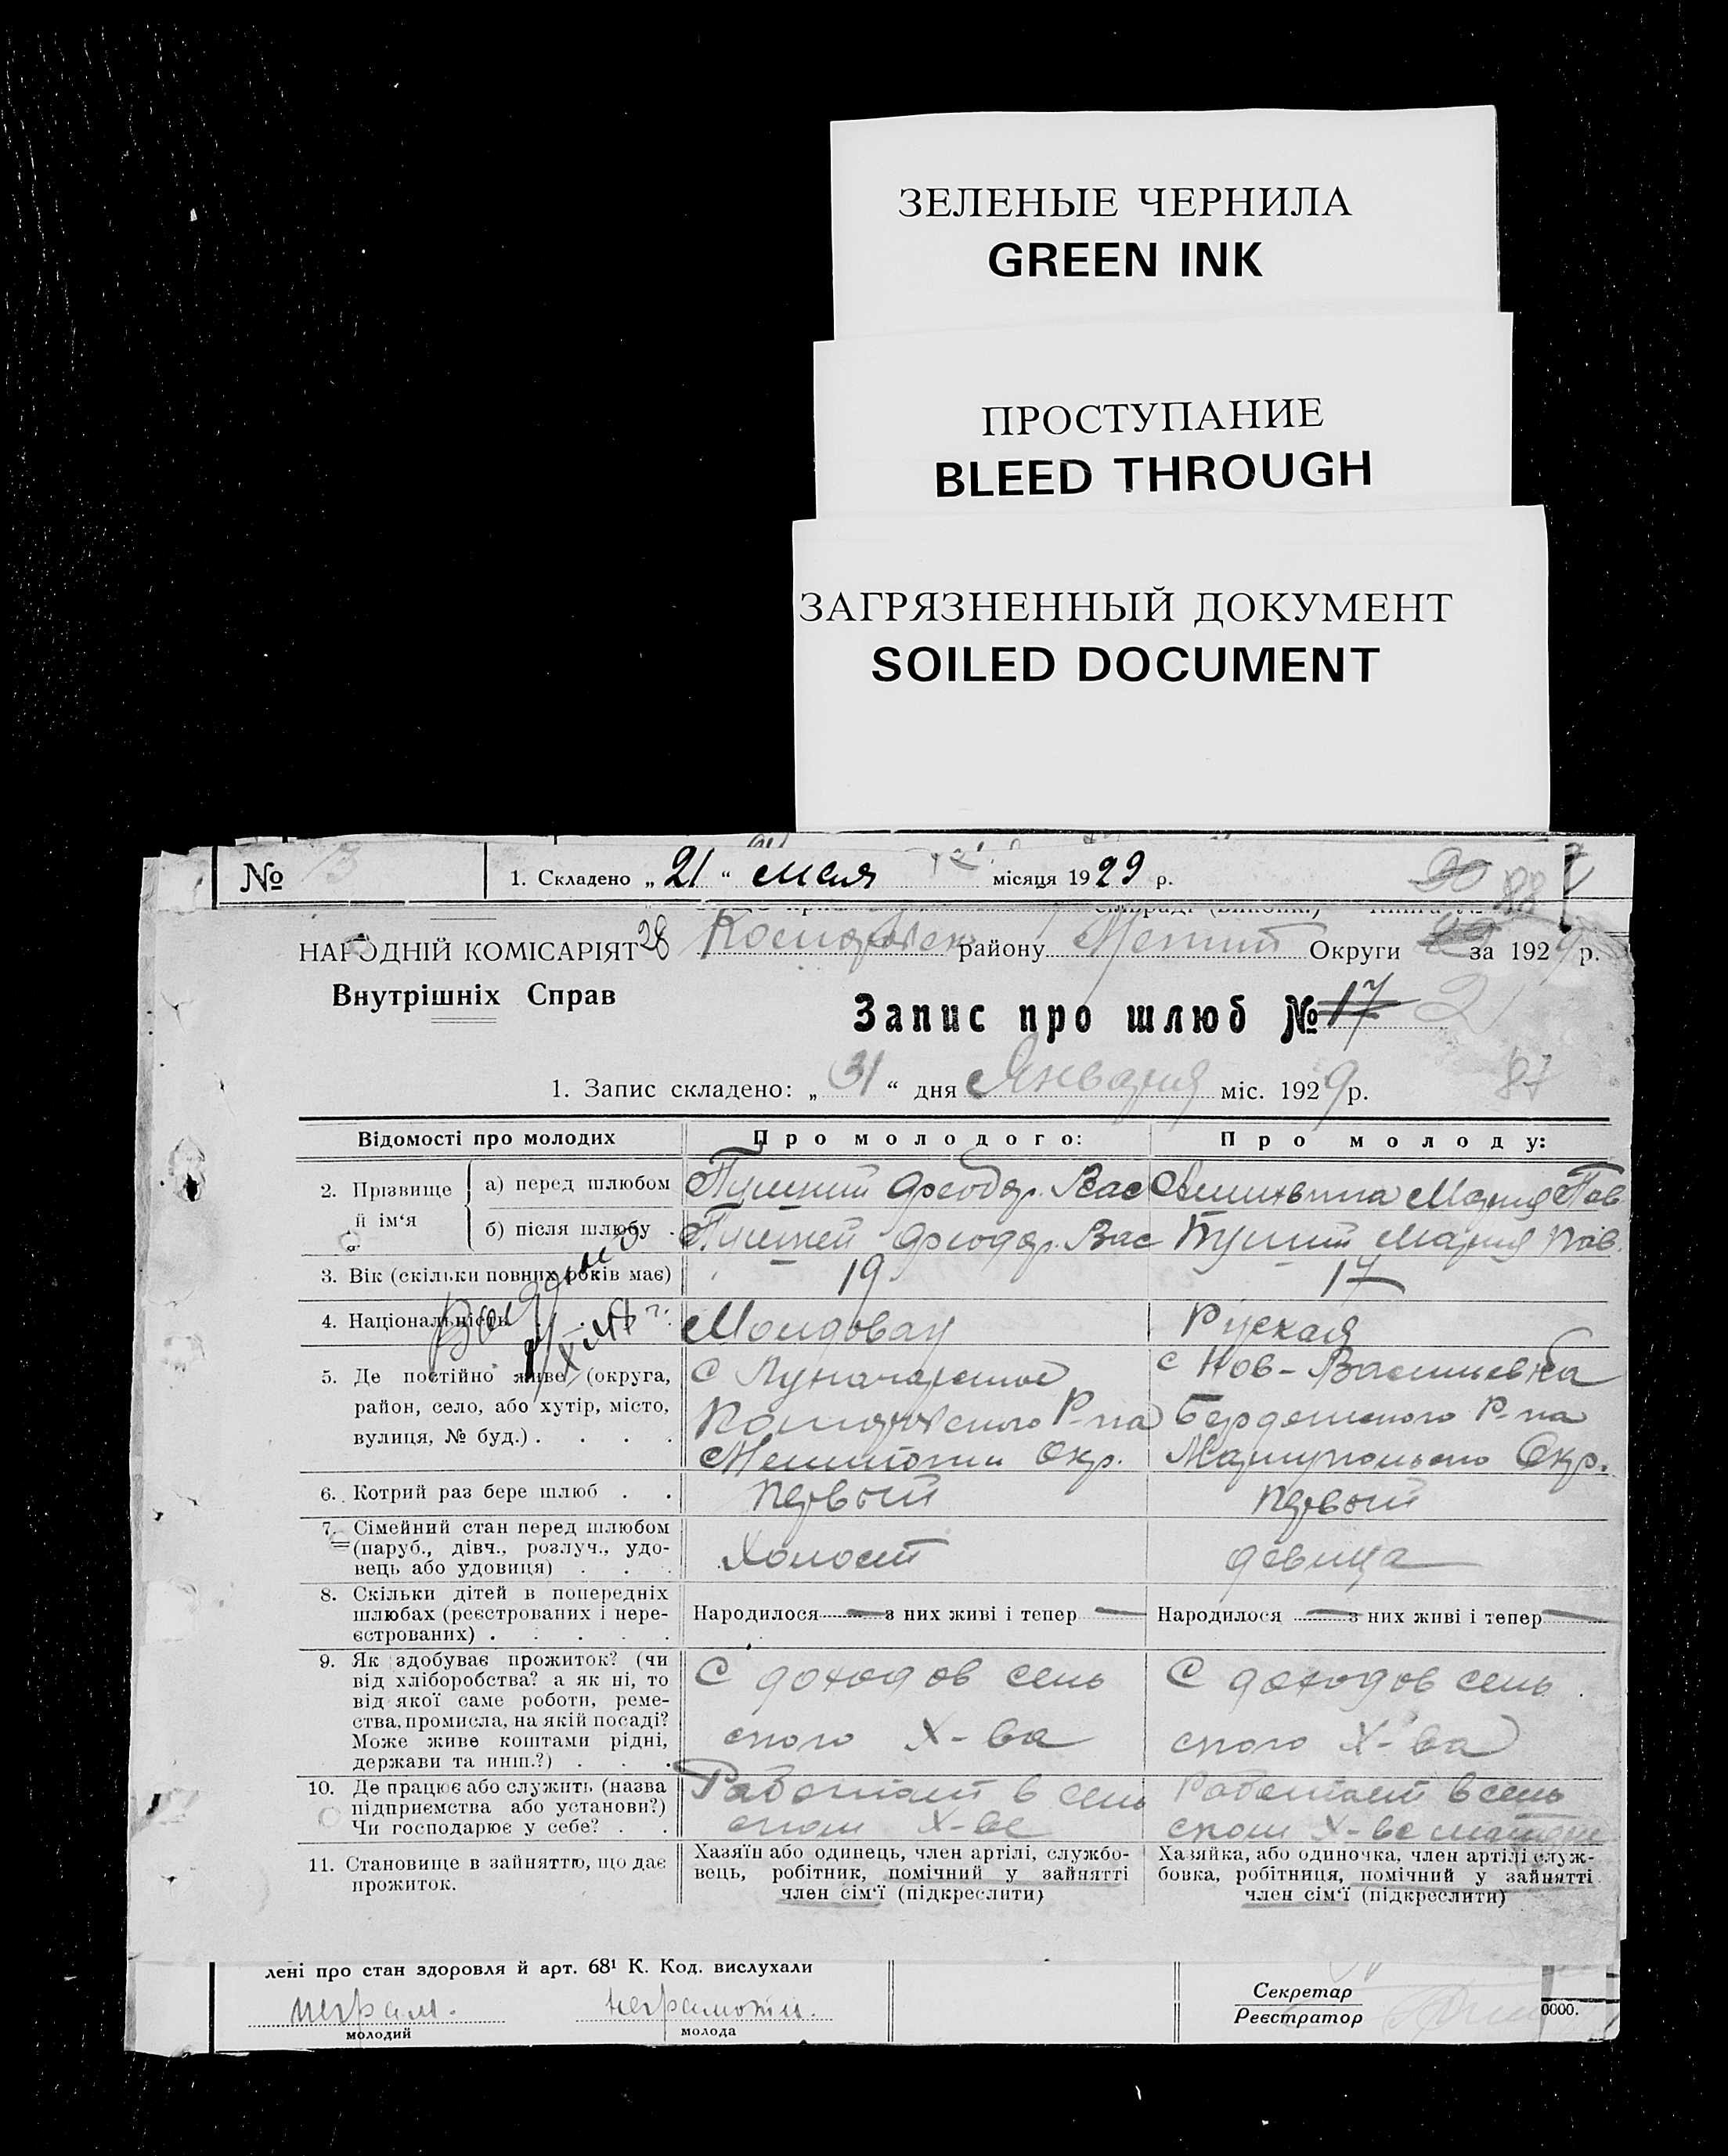 ЗЕЛЕНЫЕ ЧЕРНИЛА
GREEN INK
ПРОСТУПАНИЕ
BLEED THROUGH
ЗАГРЯЗНЕННЫЙ ДОКУМЕНТ
SOILED DOCUMENT
№ 1. Складено „21“ мая місяця 1929 р.
88
НАРОДНІЙ КОМІСАРІЯТ 28 району Округи за 1929 р.
Внутрішніх Справ
Запис про шлюб № 17 2
1. Запис складено: „31“ дня Января міс. 1929 р. 87
Відомості про молодих Про молодого: Про молоду:
2. Прізвище й ім‘я
а) перед шлюбом Феодор. Вас Мария Пав
б) після шлюбу Феодор. Вас Мария Пав.
3. Вік (скільки повних років має) 19 17
4. Національність Молдован Руская
5. Де постійно живе (округа, С Луначарское с Нов-Васильевка
район, село, або хутір, місто, Р-на Р-на
вулиця, № буд.) Окр. Окр.
6. Котрий раз бере шлюб первый первый
7. Сімейний стан перед шлюбом
(паруб., дівч., розлуч., удо- Холост девица
вець або удовиця)
8. Скільки дітей в попередніх
шлюбах (реєстрованих і нере- Народилося — з них живі і тепер — Народилося — з них живі і тепер —
єстрованих)
9. Як здобуває прожиток? (чи С доходов сель С доходов сель
від хліборобства? а як ні, то
від якої саме роботи, реме-
ства, промисла, на якій посаді?
Може живе коштами рідні, ского Х-ва ского Х-ва
держави та инш.?)
10. Де працює або служить (назва Работает в сель Работает в сель
підприємства або установи?)
Чи господарює у себе? ском Х-ве ском Х-ве
11. Становище в зайняттю, що дає прожиток.
Хазяїн або одинець, член артілі, службо-
вець, робітник, помічний у зайнятті
член сім‘ї (підкреслити)
Хазяйка, або одиночка, член артілі служ-
бовка, робітниця, помічний у зайнятті
член сім‘ї (підкреслити)
лені про стан здоровля й арт. 68¹ К. Код. вислухали
неграм. неграмотн.
молодий молода
Секретар
Реєстратор
0000.